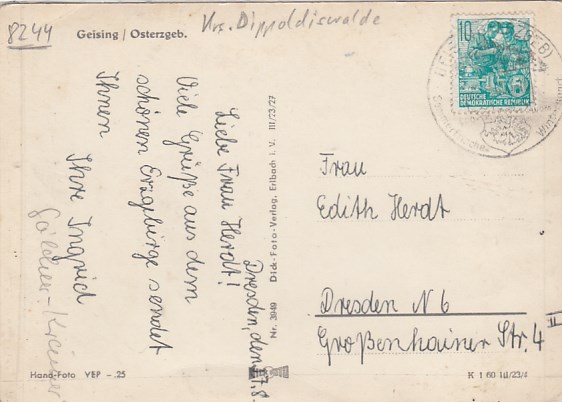 8244
Krs. Dippoldiswalde
Geising / Osterzgeb.
10
DEUTSCHE
DEMOKRATISCHE REPUBLIK
Dresden, den 17.8.
Liebe Frau Herdt!
Viele Grüße aus dem
schönen Erzgebirge sendet
Ihnen
Ihre Ingrid
Nr. 3949 Dick-Foto-Verlag, Erlbach i. V. III/23/27
Frau
Edith Herdt
Dresden N 6
Großenhainer Str. 4
II
Hand-Foto VEP - 25
K 1 60 III/23/4